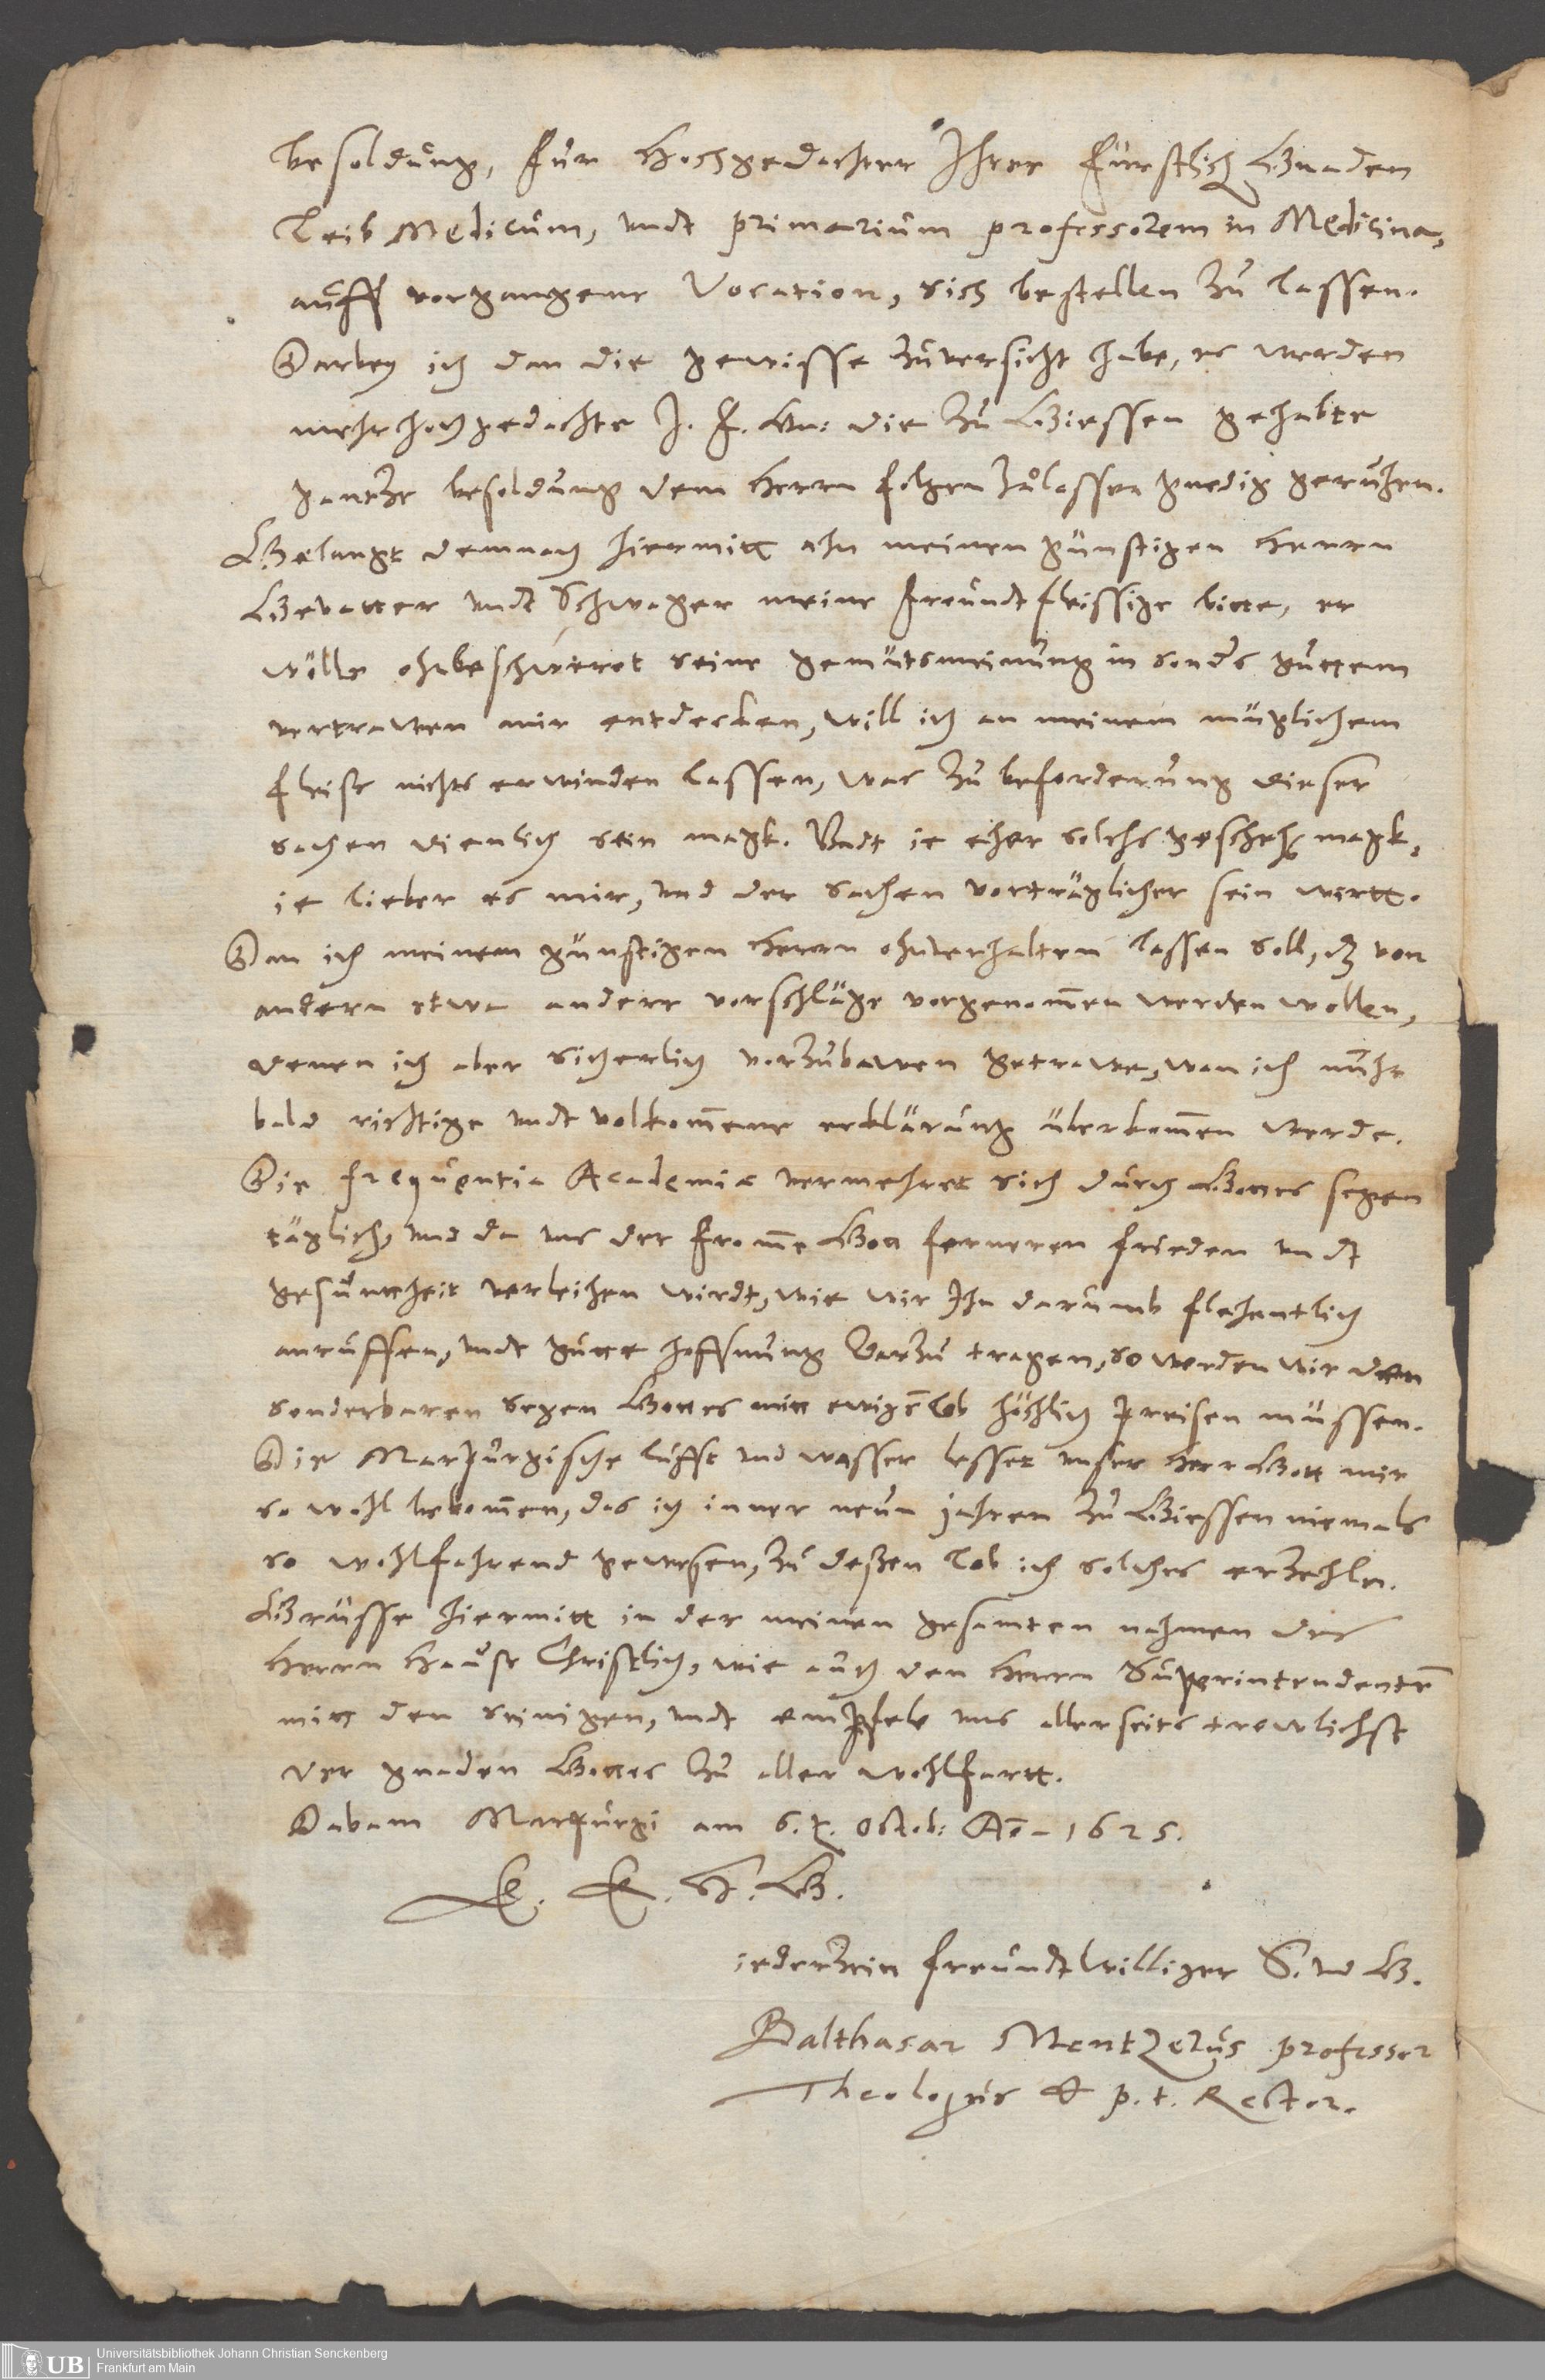 besoldung, für Hochgedachter Ihrer Fürstlich Gnaden
Leib Medicum, undt primarium professorem in Medicina,
auff vorgangene Vocation, sich bestellen zu lassen.
Darbey ich dan die gewisse zuversicht habe, es werden
mehrhochgedachte J. F. Gn: die zu Giessen gehabte
gantze besoldung dem Herrn folgen zulassen gnedig geruhen.
Gelangt demnach hiermitt ahn meinen günstigen Herrn
Gevatter undt Schwager meine freundtfleissige bitte, er
wölle ohnbeschweret seine gemütsmeinung in sonders guttem
vertrawen mir entdecken, will ich an meinem müglichem
fleiss nichts erwinden lassen, was zu beforderung dieser
sachen dienlich sein magk. Undt ie eher solchs geschehen magk,
ie lieber es mir, und der sachen vorträglicher sein wirtt.
Dan ich meinem günstigen Herrn ohnverhalten lassen soll, das von
andern etwa andere vorschläge vorgenommen werden wollen,
denen ich aber sicherlich vorzubawen getrawe, wan ich nuhr
bald richtige undt volkommene erklärung überkommen werde.
Die frequentia Academiae vermehret sich durch Gottes segen
täglich, und da uns der fromme Gott ferneren frieden undt
gesuntheit verleihen wirdt, wie wir Ihn darumb flehentlich
anruffen, undt gutte hoffnung darzu tragen, so werden wir den
sonderbaren segen Gottes mitt ewigem lob höchlich preisen müssen.
Die Marpurgische lufft und wasser lesset unser Herr Gott mir
so wohl bekommen, das ich inner neun jahren zu Giessen niemals
so wohlfahrend gewesen, zu deßen lob ich solches erzehle.
Grüsse hiermitt in der meinen gesamten nahmen des
Herrn Hauss Christlich, wie auch den Herrn Superintendenten
mitt den seinigen, undt empfele uns allerseits trewlichst
der gnaden Gottes zu aller wohlfartt.
Dabam Marpurgi am 6. t. Octob: Ao 1625.
E. E. H. G.
iederzeitt freundtwilliger S. und G.
Balthasar Mentzerus professor
Theologus & p. t. Rector.
UB Universitätsbibliothek Johann Christian Senckenberg
Frankfurt am Main